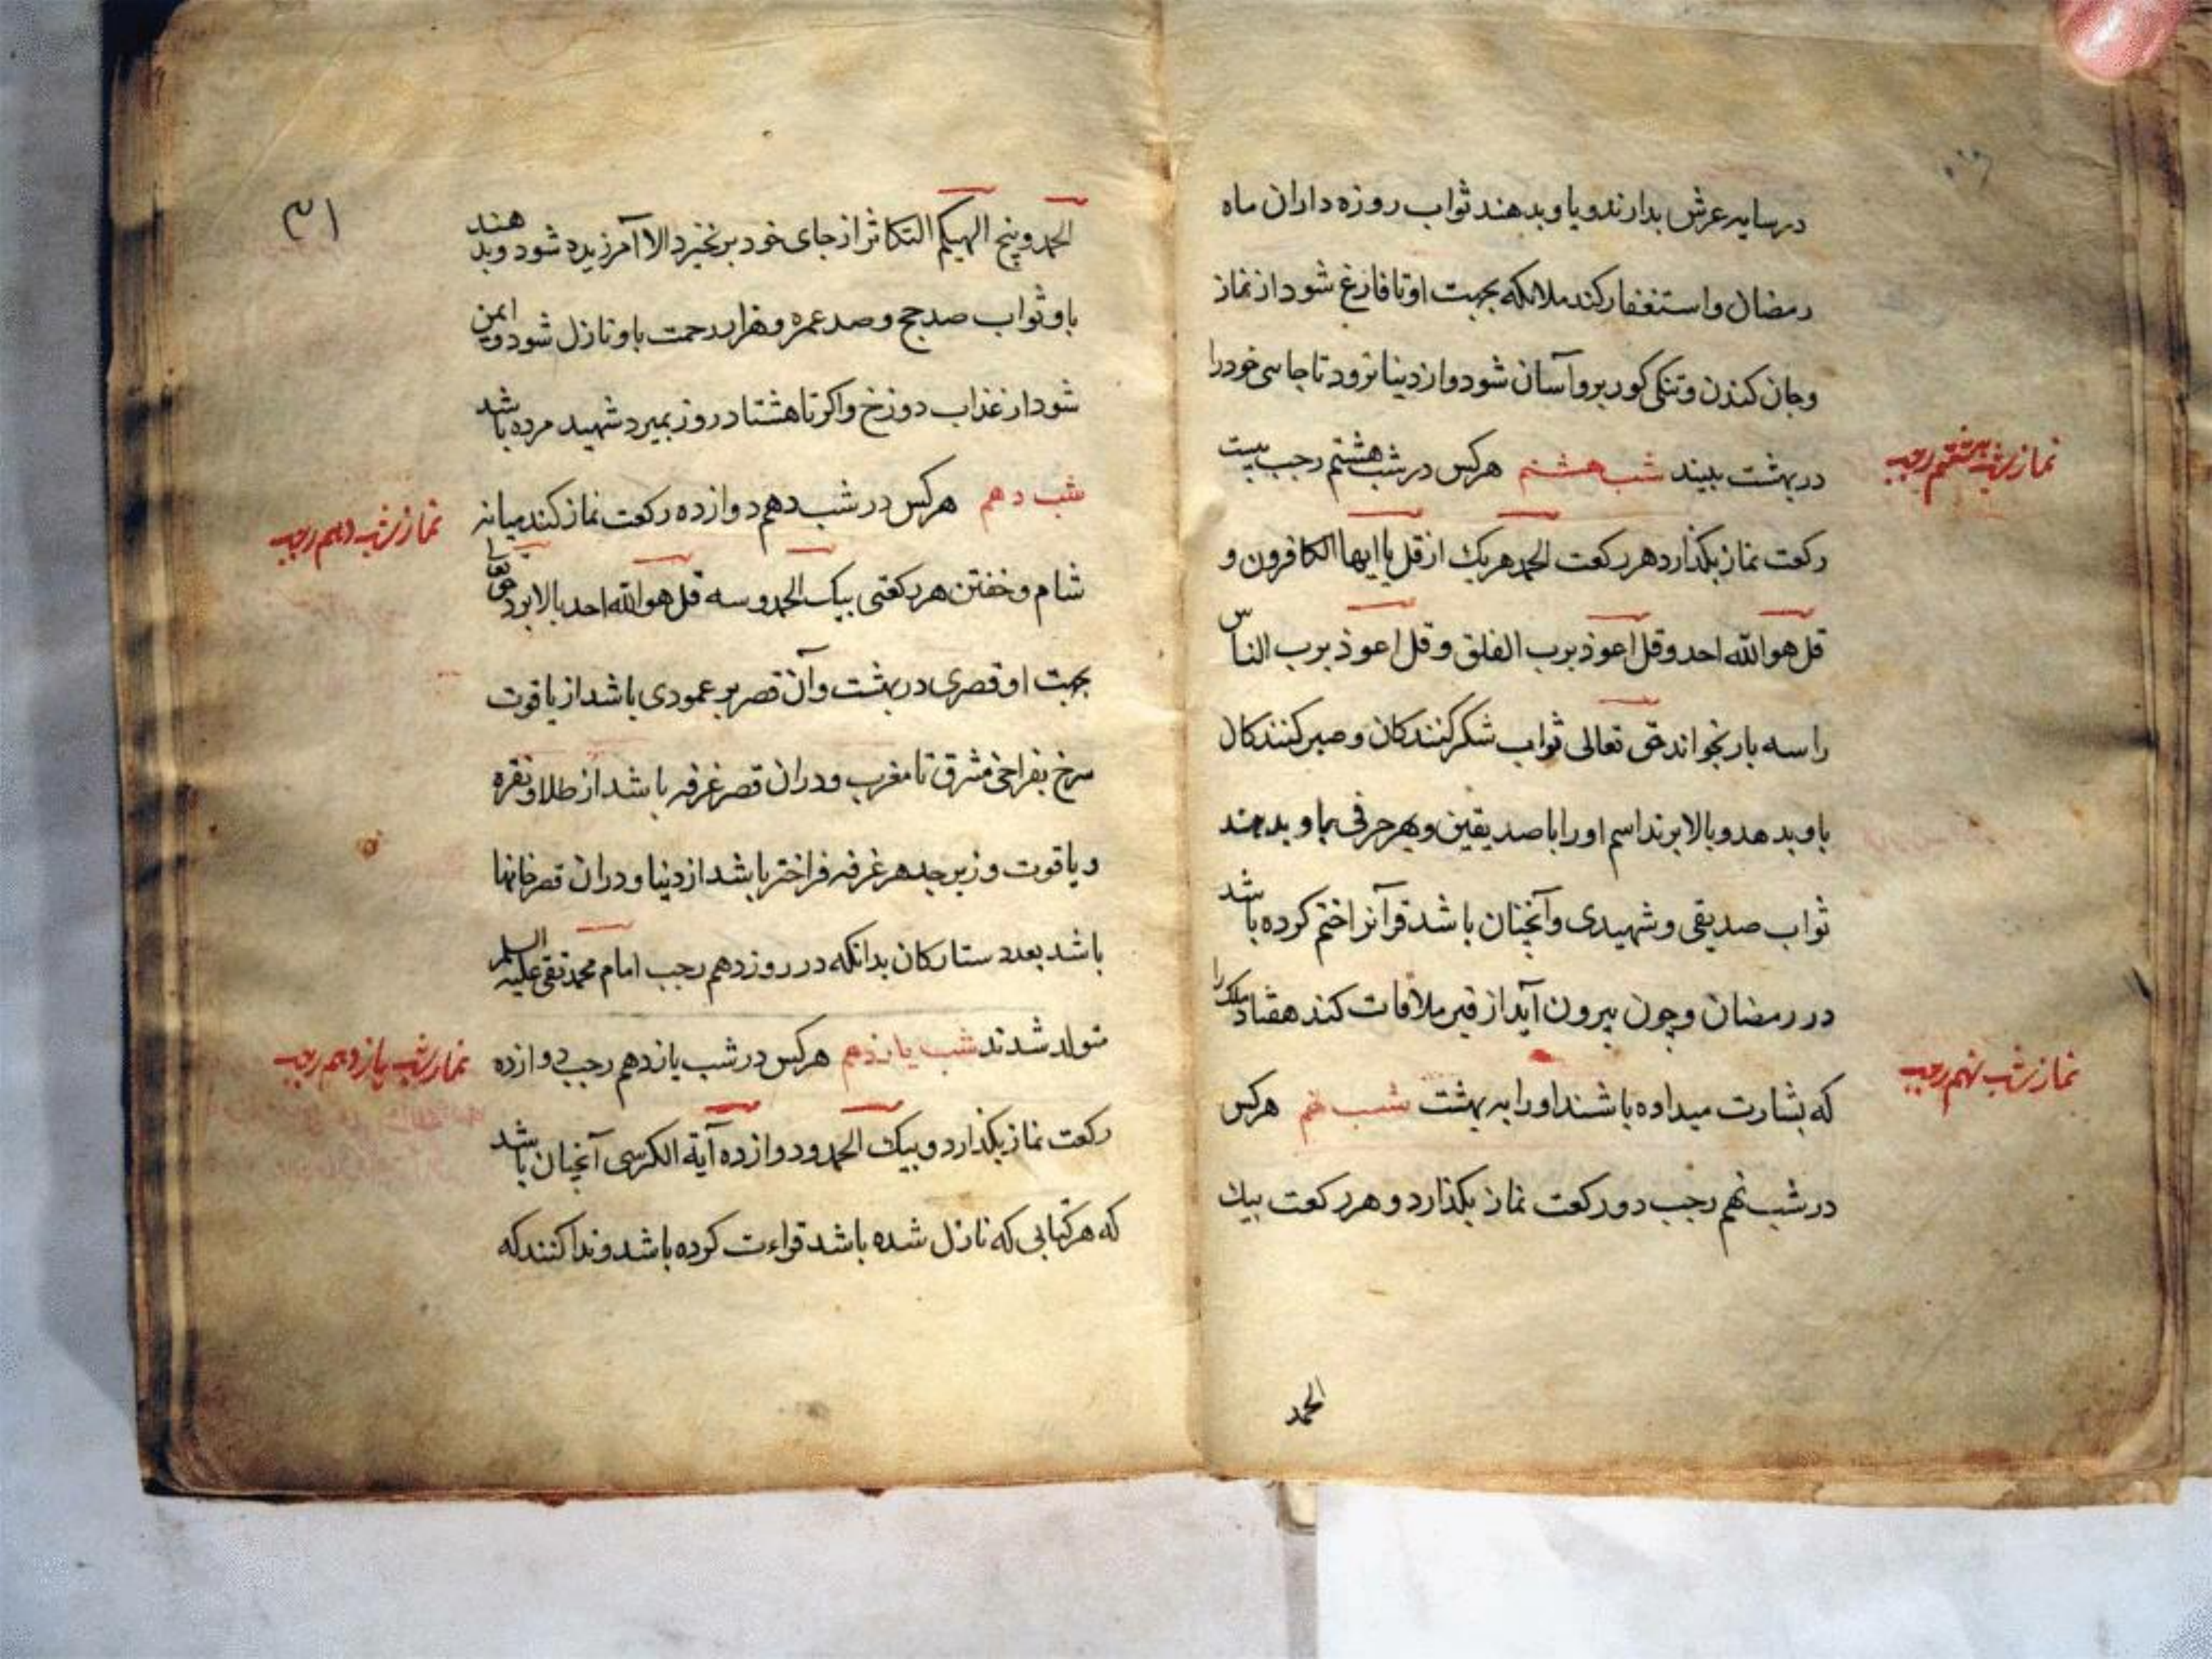 در سایه عرش بدارند و باو بدهند ثواب روزه داران ماه
رمضان و استغفار کند ملائکه بجهت او تا فارغ شود از نماز
و جان کندن و تنکی کور برو آسان شود و از دنیا نرود تا جای خود را
در بهشت ببیند شب هشتم هرکس در شب هشتم رجب بیست
نماز شب هشتم رجب
رکعت نماز بکذارد هر رکعت الحمد هر یک از قل یا ایها الکافرون و
قل هو الله احد و قل اعوذ برب الفلق و قل اعوذ برب الناس
را سه بار بخواند حق تعالی ثواب شکر کنندکان و صبر کنندکان
باو بدهد و بالا برند اسم او را با صدیقین و بهر حرفی باو بدهند
ثواب صدیقی و شهیدی و آنچنان باشد قرآنرا ختم کرده باشد
در رمضان و چون بیرون آید از قبر ملاقات کند هفتاد ملک را
که بشارت میداده باشند او را به بهشت شب نهم هرکس
نماز شب نهم رجب
در شب نهم رجب دو رکعت نماز بکذارد و هر رکعت بیک
الحمد
۳۱
الحمد و پنج الهیکم التکاثر از جای خود برنخیزد الا آمرزیده شود و بدهند
باو ثواب صد حج و صد عمره و هزار رحمت باو نازل شود و ایمن
شود از عذاب دوزخ و اکر تا هشتاد روز بمیرد شهید مرده باشد
شب دهم هرکس در شب دهم دوازده رکعت نماز کند میانه
نماز شب دهم رجب
شام و خفتن هر رکعتی بیک الحمد و سه قل هو الله احد بالا برد حق تعالی
بجهت او قصری در بهشت و آن قصر بر عمودی باشد از یاقوت
سرخ بفراخی مشرق تا مغرب و در ان قصر غرفه باشد از طلا و نقره
و یاقوت و زبرجد هر غرفه فراختر باشد از دنیا و در ان قصر خانها
باشد بعدد ستارکان بدانکه در روز دهم رجب امام محمد تقی علیه السلم
متولد شدند شب یازدهم هرکس در شب یازدهم رجب دوازده
نماز شب یازدهم رجب
رکعت نماز بکذارد و بیک الحمد و دوازده آیة الکرسی آنچنان باشد
که هر کتابی که نازل شده باشد قراءت کرده باشد و ندا کنند که